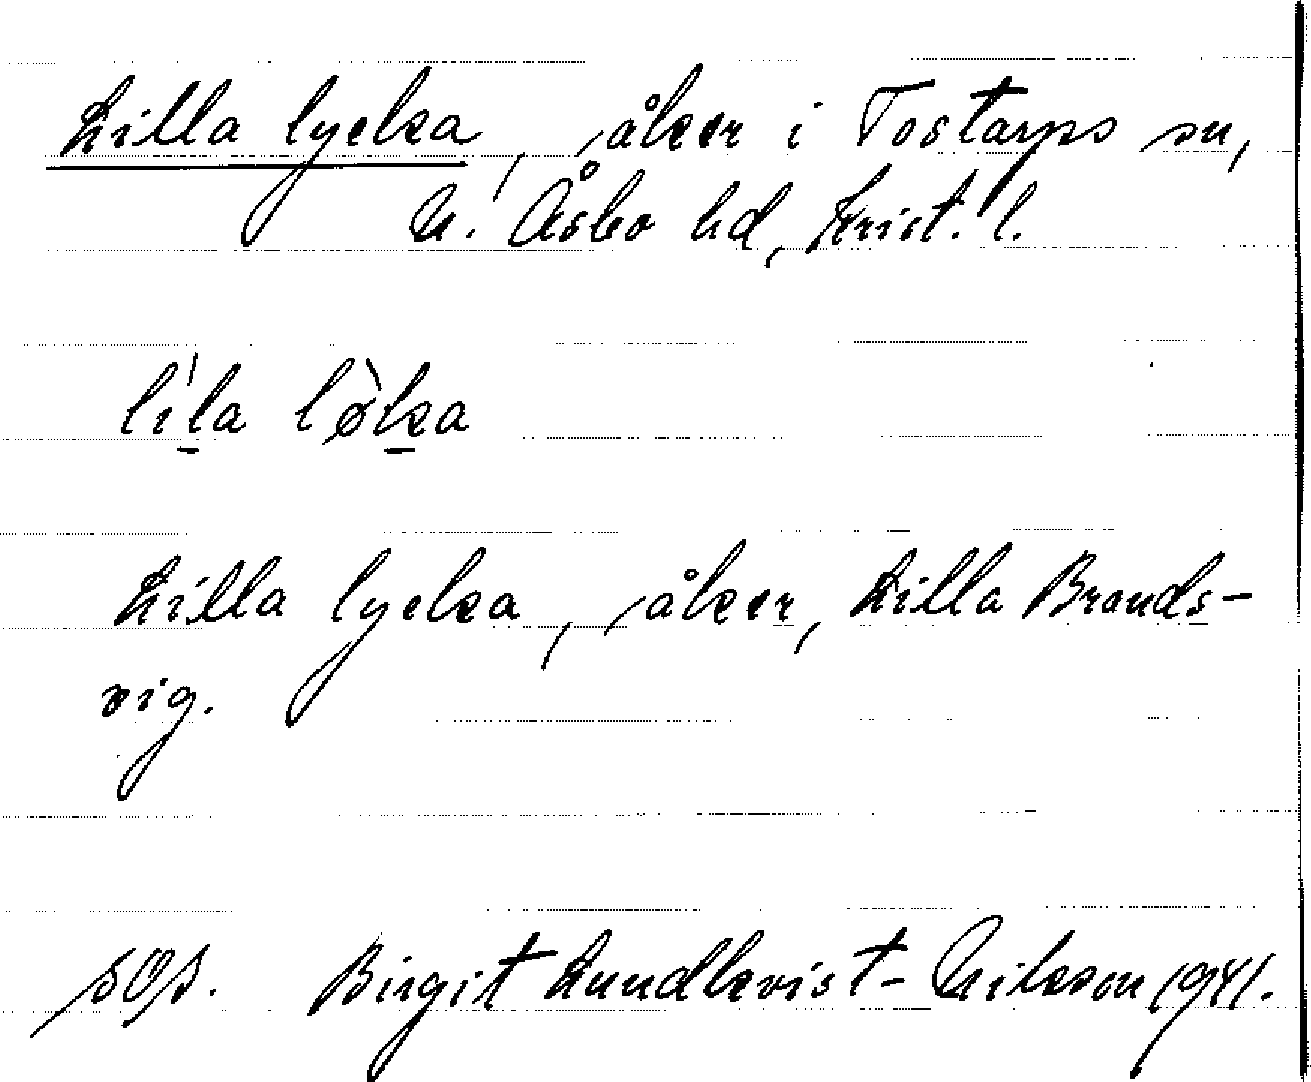 Lilla lycka, åker i Tostarps sn,
N. Åsbo hd, Krist. l.
li̍l̠a lø̀k̠a
Lilla lycka, åker, Lilla Brands-
vig.
Birgit Lundkvist-Nilsson 1941.